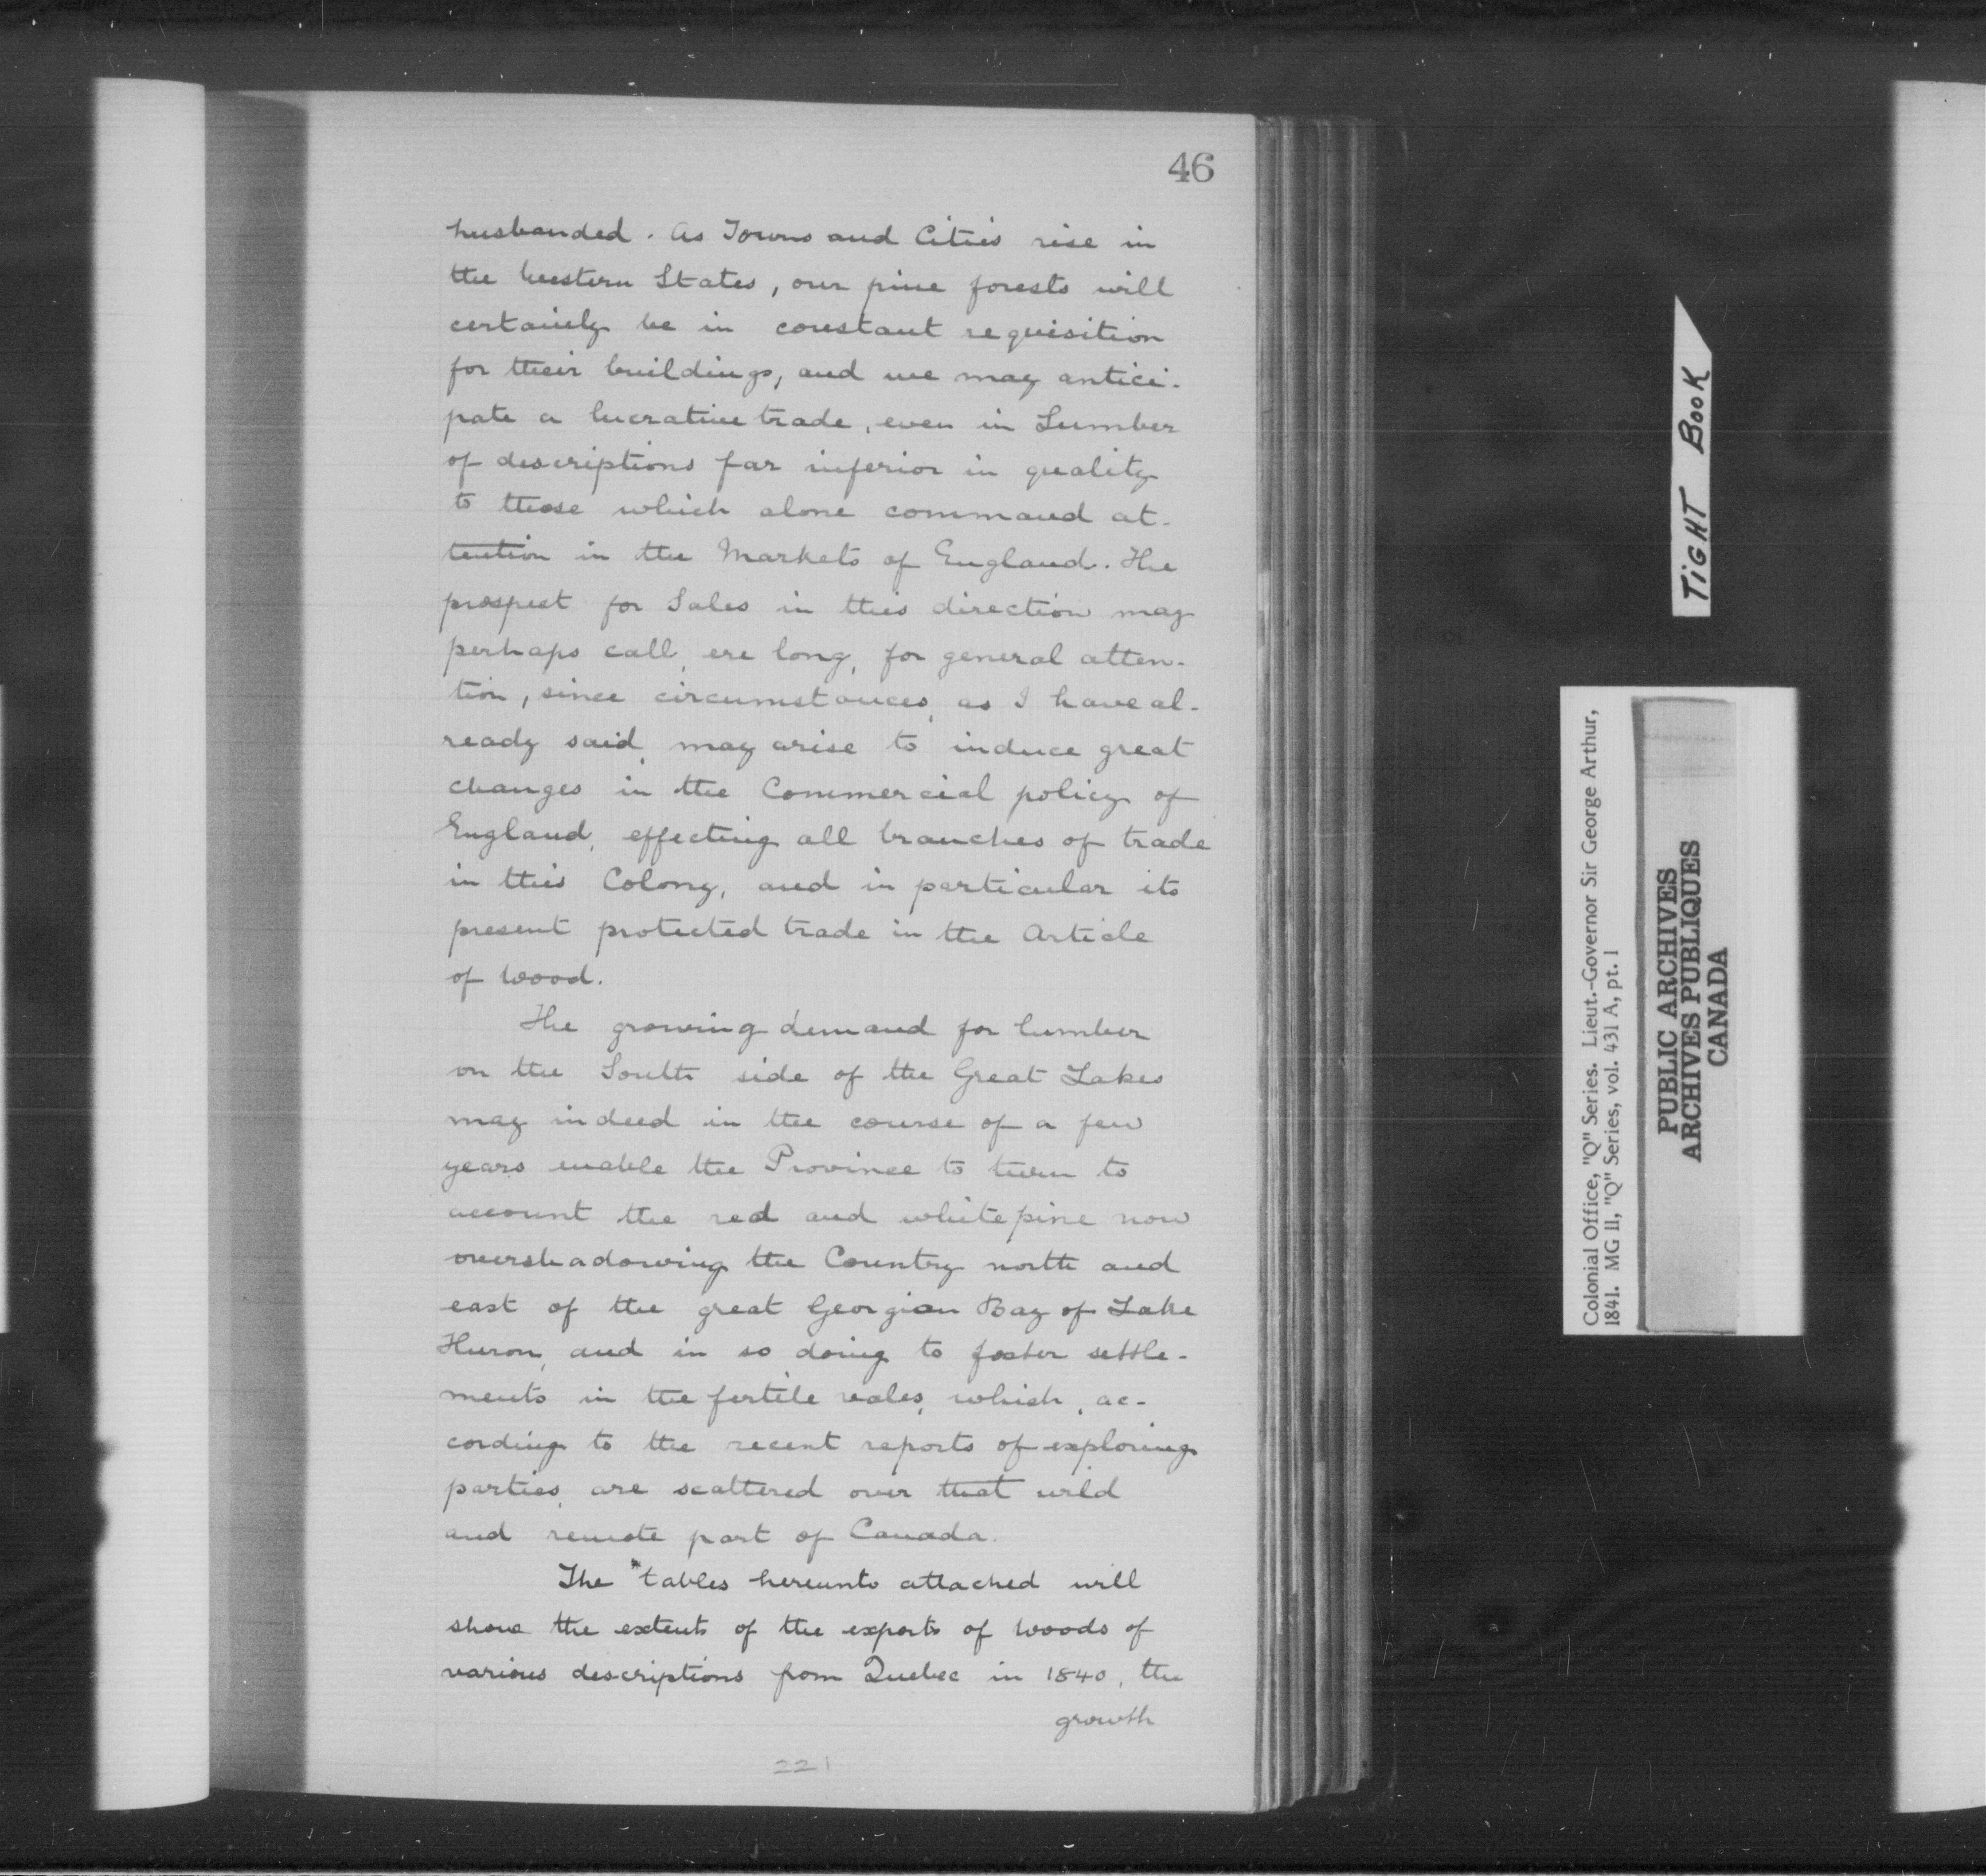 46
husbanded. As Towns and Cities rise in
the Western States, our pine forests will
certainly be in constant requisition
for their buildings, and we may antici-
pate a lucrative trade, even in Lumber
of descriptions far inferior in quality
to those which alone command at-
tention in the Markets of England. The
prospect for Sales in this direction may
perhaps call, ere long, for general atten-
tion, since circumstances, as I have al-
ready said, may arise to induce great
changes in the Commercial policy of
England, effecting all branches of trade
in this Colony, and in particular its
present protected trade in the Article
of wood.
The growing demand for lumber
on the South side of the Great Lakes
may indeed in the course of a few
years enable the Province to turn to
account the red and white pine now
overshadowing the Country north and
east of the great Georgian Bay of Lake
Huron, and in so doing to foster settle-
ments in the fertile vales, which, ac-
cording to the recent reports of exploring
parties, are scattered over that wild
and remote part of Canada.
The *tables hereunto attached will
show the extent of the exports of woods of
various descriptions from Quebec in 1840, the
growth
221
TIGHT BOOK
Colonial Office, "Q" Series. Lieut.-Governor Sir George Arthur,
1841. MG 11, "Q" Series, vol. 431 A, pt. 1
PUBLIC ARCHIVES
ARCHIVES PUBLIQUES
CANADA